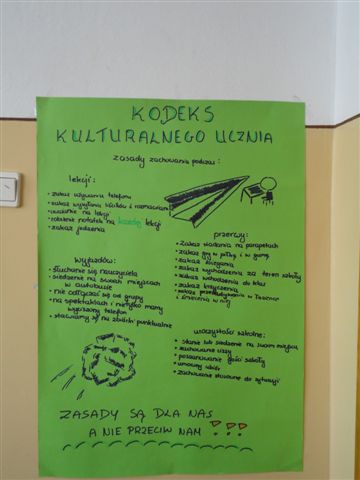 KODEKS
KULTURALNEGO UCZNIA
zasady zachowania podczas:
lekcji:
• zakaz używania telefonu
• zakaz wysyłania liścików i rozmawiania
• uważanie na lekcji
• robienie notatek na każdej lekcji
• zakaz jedzenia
przerwy:
• zakaz siadania na parapetach
• zakaz gry w piłkę i w gumę
• zakaz biegania
• zakaz wychodzenia za teren szkoły
• zakaz wchodzenia do klas
• zakaz krzyczenia
• zakaz przesiadywania w łazience
i śmiecenia w niej
wyjazdów:
• słuchanie się nauczyciela
• siedzenie na swoich miejscach
w autobusie
• nie odłączać się od grupy
• na spektaklach i nietylko mamy
wyciszony telefon
• stawiamy się na zbiórki punktualnie
uroczystości szkolne:
• stanie lub siedzenie na swoim miejscu
• zachowanie ciszy
• poszanowanie gości szkoły
• umowny ubiór
• zachowanie stosowne do sytuacji
ZASADY SĄ DLA NAS
A NIE PRZECIW NAM !!!